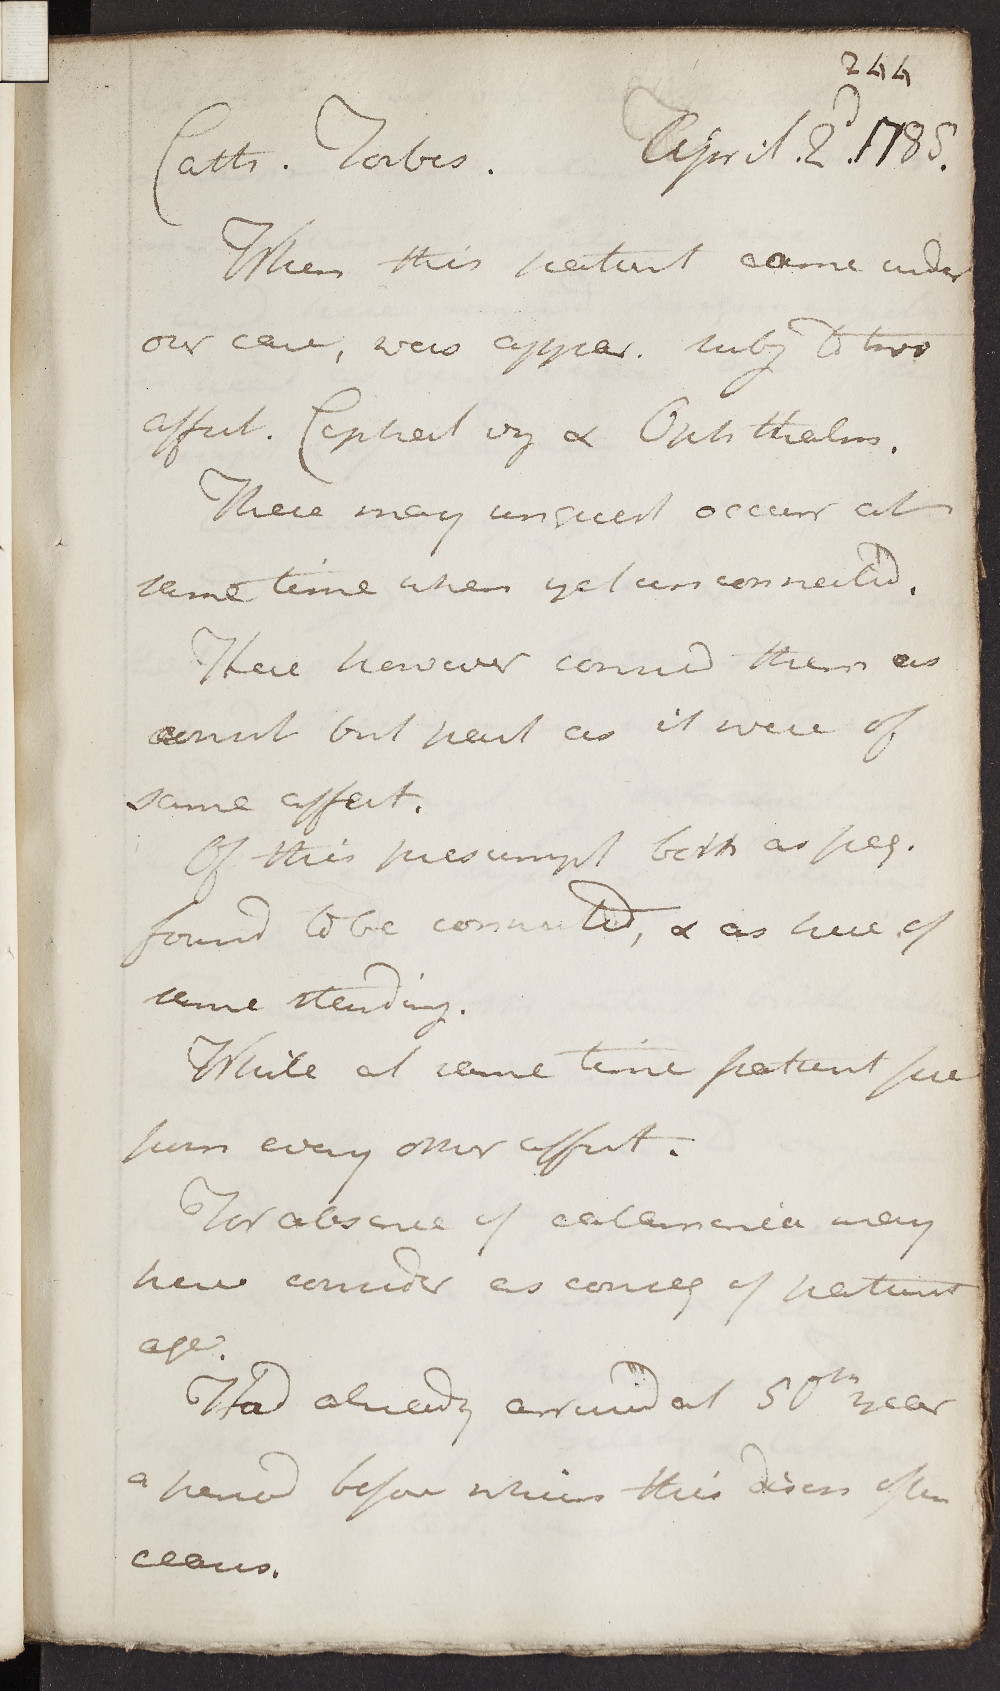 244
Cath. Forbes. April. 2d. 1785.
When this patient came under
our care, was appar. subj to two
affect. Cephal & Ophthalm.
These may unquest occurr at
same time when yet unconnected.
Here however consid them as
but part as it were of
same affect.
Of this presumpt both as freq.
found to be connected, & as here of
same standing.
While at same time patient free
from every other affect.
For absence of catamenia may
here consider as conseq of patients
age.
Had already arrived at 50th year
a period before which this disch often
ceases.